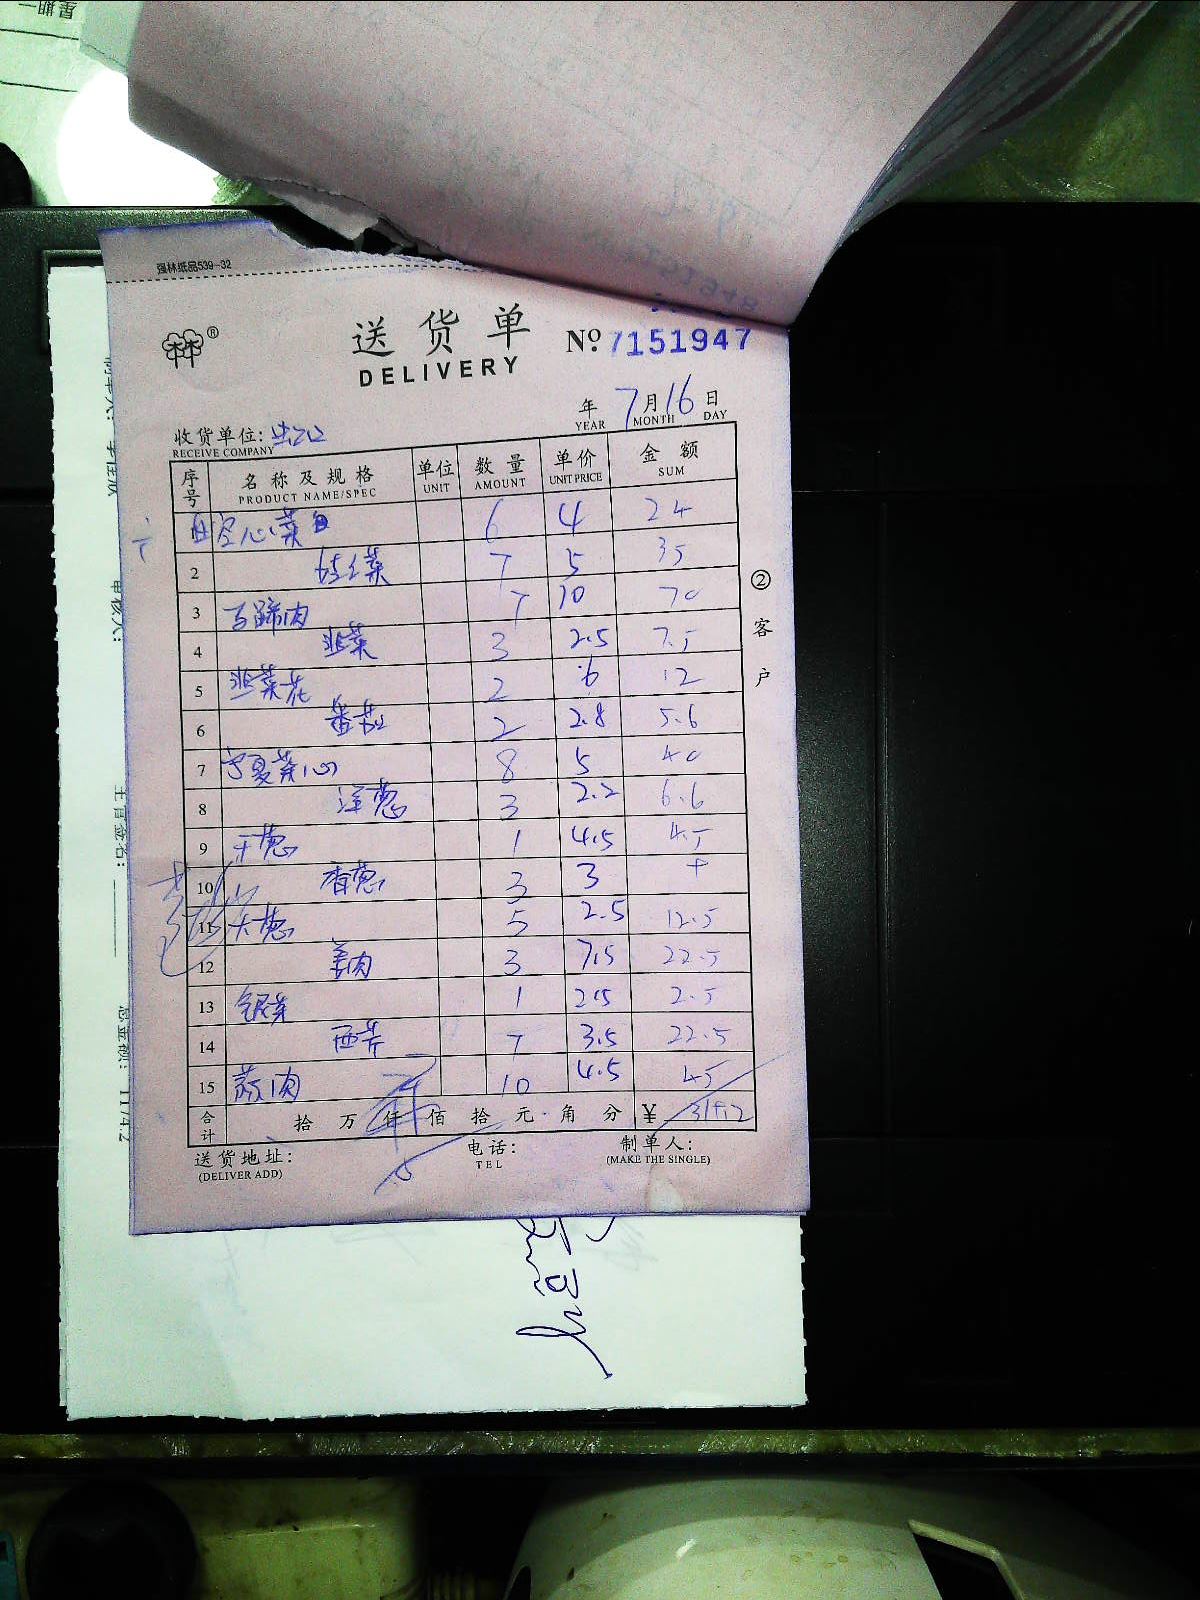 星期一
强林纸品539-32
送货单
DELIVERY
No 7151947
年 7月16日
YEAR MONTH DAY
收货单位:
RECEIVE COMPANY
序号 名称及规格 单位 数量 单价 金额
PRODUCT NAME/SPEC UNIT AMOUNT UNIT PRICE SUM
空心菜 6 4 24
2 7 5 35
3 马蹄肉 7 10 70
4 韭菜 3 2.5 7.5
5 韭菜花 2 6 12
6 番茄 2 2.8 5.6
7 宁夏菜心 8 5 40
8 洋葱 3 2.2 6.6
9 干葱 1 4.5 4.5
10 香葱 3 3
11 大葱 5 2.5 12.5
12 姜肉 3 7.5 22.5
13 银芽 1 2.5 2.5
14 西芹 7 3.5 22.5
15 蒜肉 10 4.5 45
合计 拾 万 仟 佰 拾 元 角 分 ¥
送货地址:
(DELIVER ADD)
电话:
TEL
制单人:
(MAKE THE SINGLE)
② 客户
审核人:
主管签名:
总金额: 1174.2